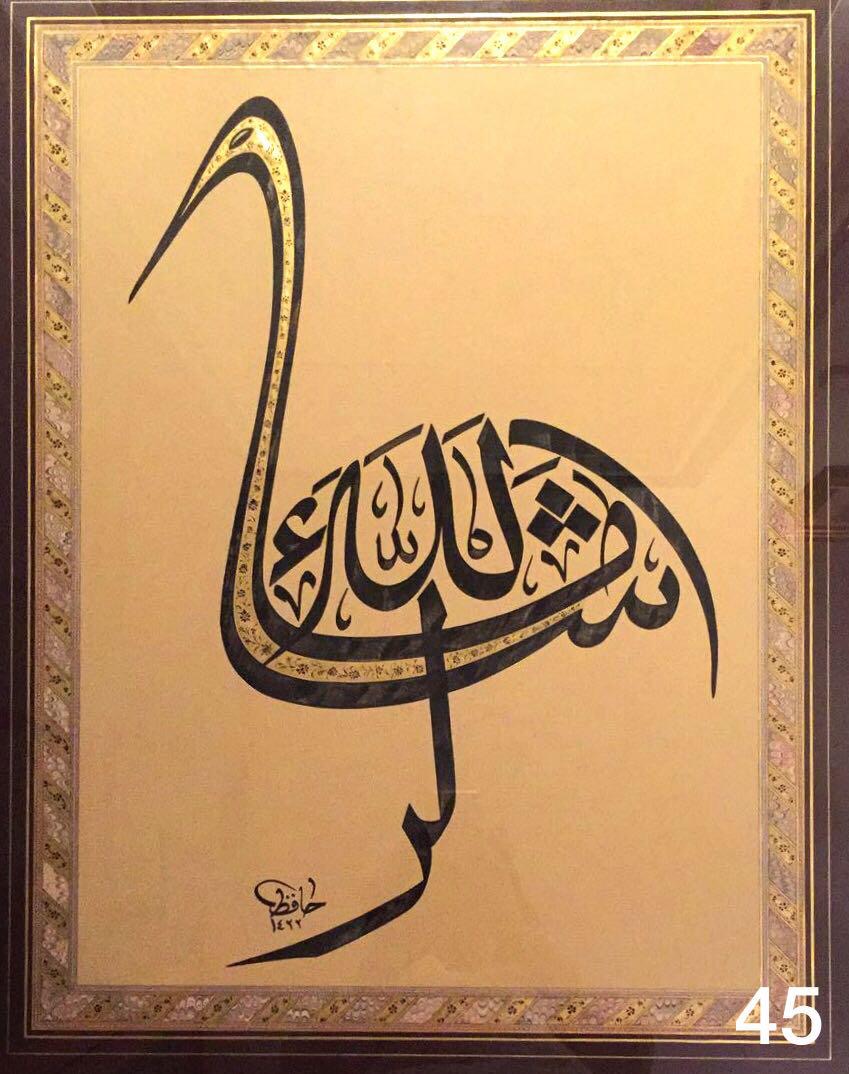 ما شاء الله
حافظ
١٤٢٢
45